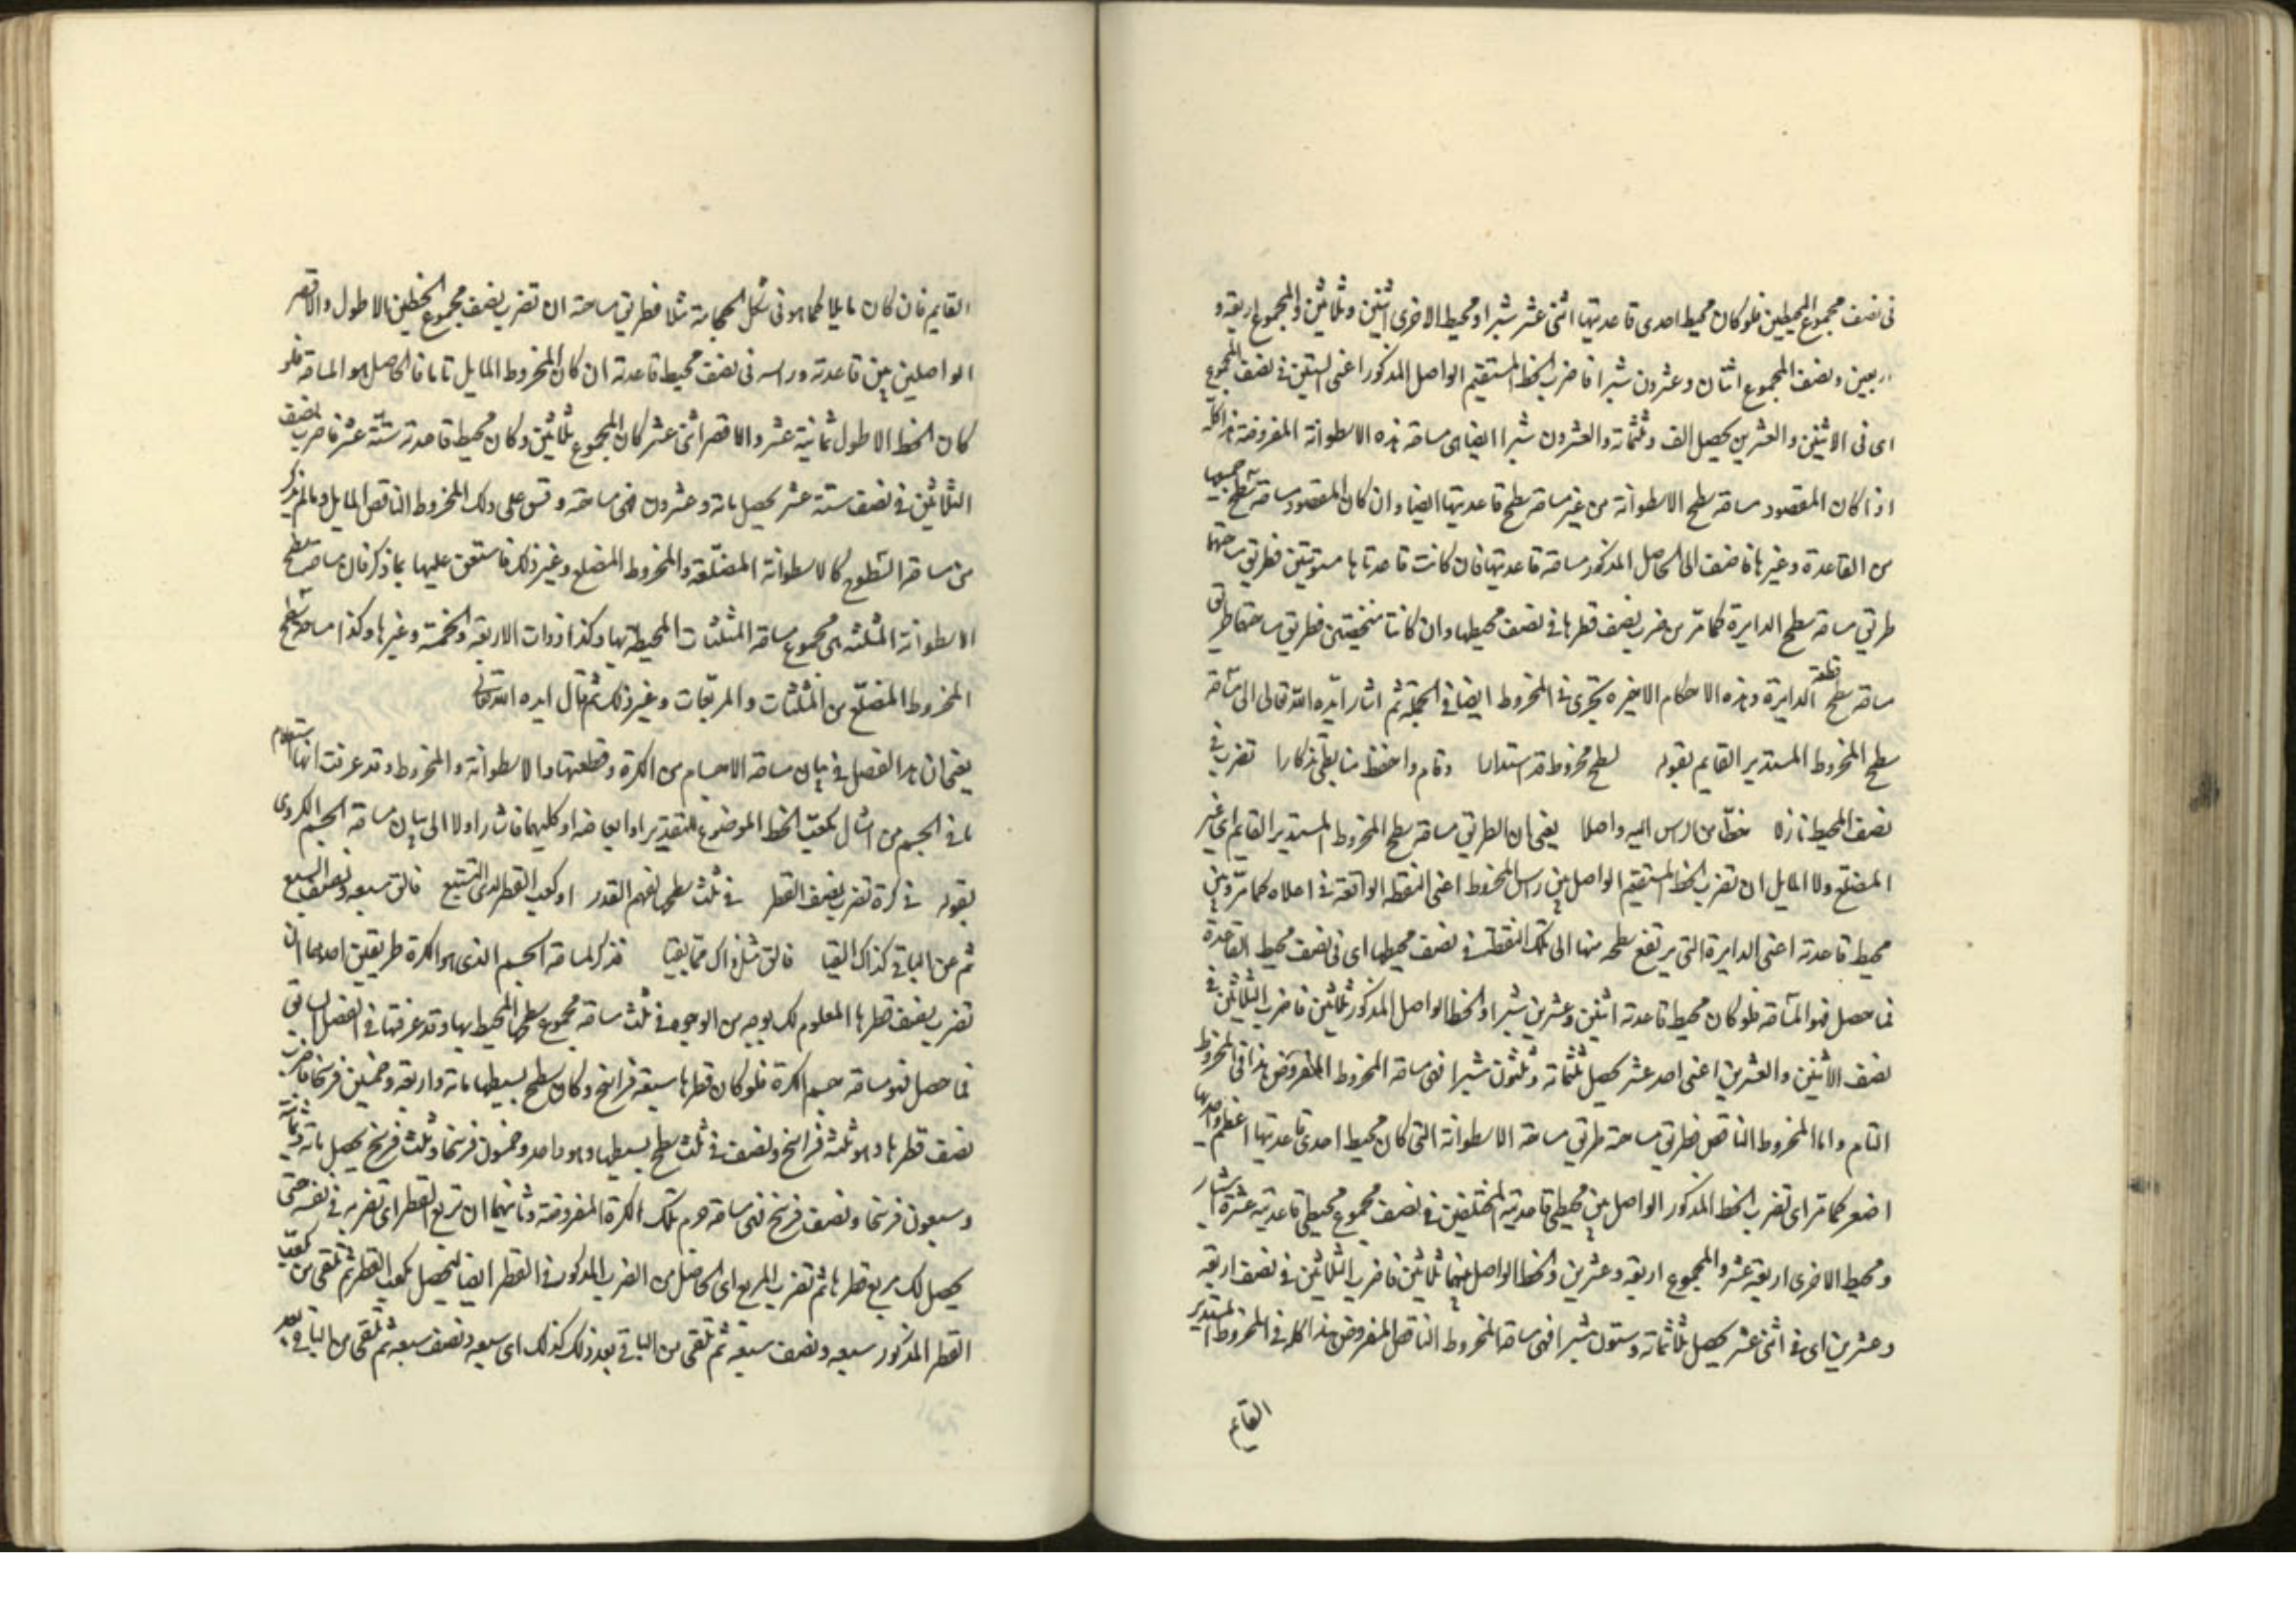 فى نصف مجموع المحيطين فلو كان محيط احدى قاعدتيها اثنى عشر شبرا ومحيط الاخرى اثنين وثلاثين والمجموع اربعة و
اربعين ونصف المجموع اثنان وعشرون شبرا فاضرب الخط المستقيم الواصل المذكور اعنى الستين فى نصف المجموع
اى فى الاثنين والعشرين يحصل الف وثلثمائة والعشرون شبرا ايضا هى مساحة هذه الاسطوانة المفروضة هذا كله
اذا كان المقصود مساحة سطح الاسطوانة من غير مساحة سطح قاعدتيها ايضا وان كان المقصود مساحة سطح جميعها
من القاعدة وغيرها فاضف الى الحاصل المذكور مساحة قاعدتيها فان كانت قاعدتاها مستويتين فطريق مساحتهما
طريق مساحة سطح الدايرة كما مر من ضرب نصف قطرها فى نصف محيطها وان كانتا فطريق مساحتهما طريق
مساحة سطح قطعة الدايرة وهذه الاحكام الاخيرة تجرى فى المخروط ايضا فى الجملة ثم اشار ايده الله تعالى الى مساحة
سطح المخروط المستدير القايم بقوله لسطح مخروط قد استدارا وقام واحفظ تذكارا تضرب فى
نصف المحيط نازلا خطا من الراس اليه واصلا يعنى ان الطريق مساحة سطح المخروط المستدير القايم اى غير
المضلع ولا المايل ان تضرب الخط المستقيم الواصل بين راس المخروط اعنى النقطة الواقعة فى اعلاه كما مر وبين
محيط قاعدته اعنى الدايرة التى يرتفع سطحه منها الى تلك النقطة فى نصف محيطها اى فى نصف محيط القاعدة
فما حصل فهو المساحة فلو كان محيط قاعدته اثنين وعشرين شبرا والخط الواصل المذكور ثلاثين فاضرب الثلاثين فى
نصف الاثنين والعشرين اعنى احد عشر يحصل ثلثمائة وثلثون شبرا فهى مساحة المخروط المفروض هذا فى المخروط
التام واما المخروط الناقص فطريق مساحته طريق مساحة الاسطوانة التى كان محيط احدى قاعدتيها اعظم واحديها
اصغر كما مر اى تضرب الخط المذكور الواصل بين محيطى قاعدتيه المختلفين فى نصف مجموع محيطى قاعدتيه عشرة اشبار
ومحيط الاخرى اربعة عشر والمجموع اربعة وعشرين والخط الواصل بينهما ثلاثين فاضرب الثلاثين فى نصف اربعة
وعشرين اى فى اثنى عشر يحصل ثلاثمائة وستون شبرا فهى مساحة المخروط الناقص المفروض هذا كله فى المخروط المستدير
القايم
القايم فان كان مايلا كما هو فى شكل مثلا فطريق مساحته ان تضرب نصف مجموع الخطين الاطول والاقصر
الواصلين بين قاعدته وراسه فى نصف محيط قاعدته ان كان المخروط المايل تاما فالحاصل هو المساحة فلو
كان الخط الاطول ثمانية عشر والاقصر اثنى عشر كان المجموع ثلاثين وكان محيط قاعدته ستة عشر فاضرب نصف
الثلاثين فى نصف ستة عشر يحصل مائة وعشرون فهى مساحته وقس على ذلك المخروط الناقص المايل وما لم يذكر
من مساحة السطوح كالاسطوانة المضلعة والمخروط المضلع وغير ذلك فاستعن عليها بما ذكر فان مساحة سطح
الاسطوانة المثلثة هى مجموع مساحة المثلثات المحيطة بها وكذا ذوات الاربعة والخمسة وغيرها وكذا مساحة سطح
المخروط المضلع من المثلثات والمربعات وغير ذلك ثم قال ايده الله تعالى
يعنى ان هذا الفصل فى بيان مساحة الاجسام من الكرة وقطعتها والاسطوانة والمخروط وقد عرفت انها استعلام
ما فى الجسم من امثال مكعب الخط الموضوع للتقدير او ابعاضه او كليهما فاشار اولا الى بيان مساحة الجسم الكروى
بقوله فى كرة تضرب نصف القطر فى ثلث سطحها القدر او كعب القطر لدى التتبع فالق سبعه ونصف السبع
ثم من الباقى كذاك القيا فالق مثل ذاك مما بقيا فذكر لمساحة الجسم الذى هو الكرة طريقين احدهما ان
تضرب نصف قطرها المعلوم لك بوجه من الوجوه فى ثلث مساحة مجموع سطحها المحيط بها وقد عرفتها فى الفصل السابق
فما حصل فهو مساحة جسم الكرة فلو كان قطرها سبعة فراسخ وكان سطح بسيطها مائة واربعة وخمسين فرسخا فاضرب
نصف قطرها وهو ثلثة فراسخ ونصف فى ثلث سطح بسيطها وهو واحد وخمسون فرسخا وثلث فرسخ يحصل مائة
وسبعون فرسخا ونصف فرسخ فهى مساحة جرم تلك الكرة المفروضة وثانيهما ان تربع القطر اى تضربه فى نفسه حتى
يحصل لك مربع قطرها ثم تضرب المربع اى الحاصل من الضرب المذكور فى القطر ايضا ليحصل مكعب القطر ثم تلقى من مكعب
القطر المذكور سبعه ونصف سبعه ثم تلقى من الباقى بعد ذلك كذلك اى سبعه ونصف سبعه ثم تلقى من الباقى بعد